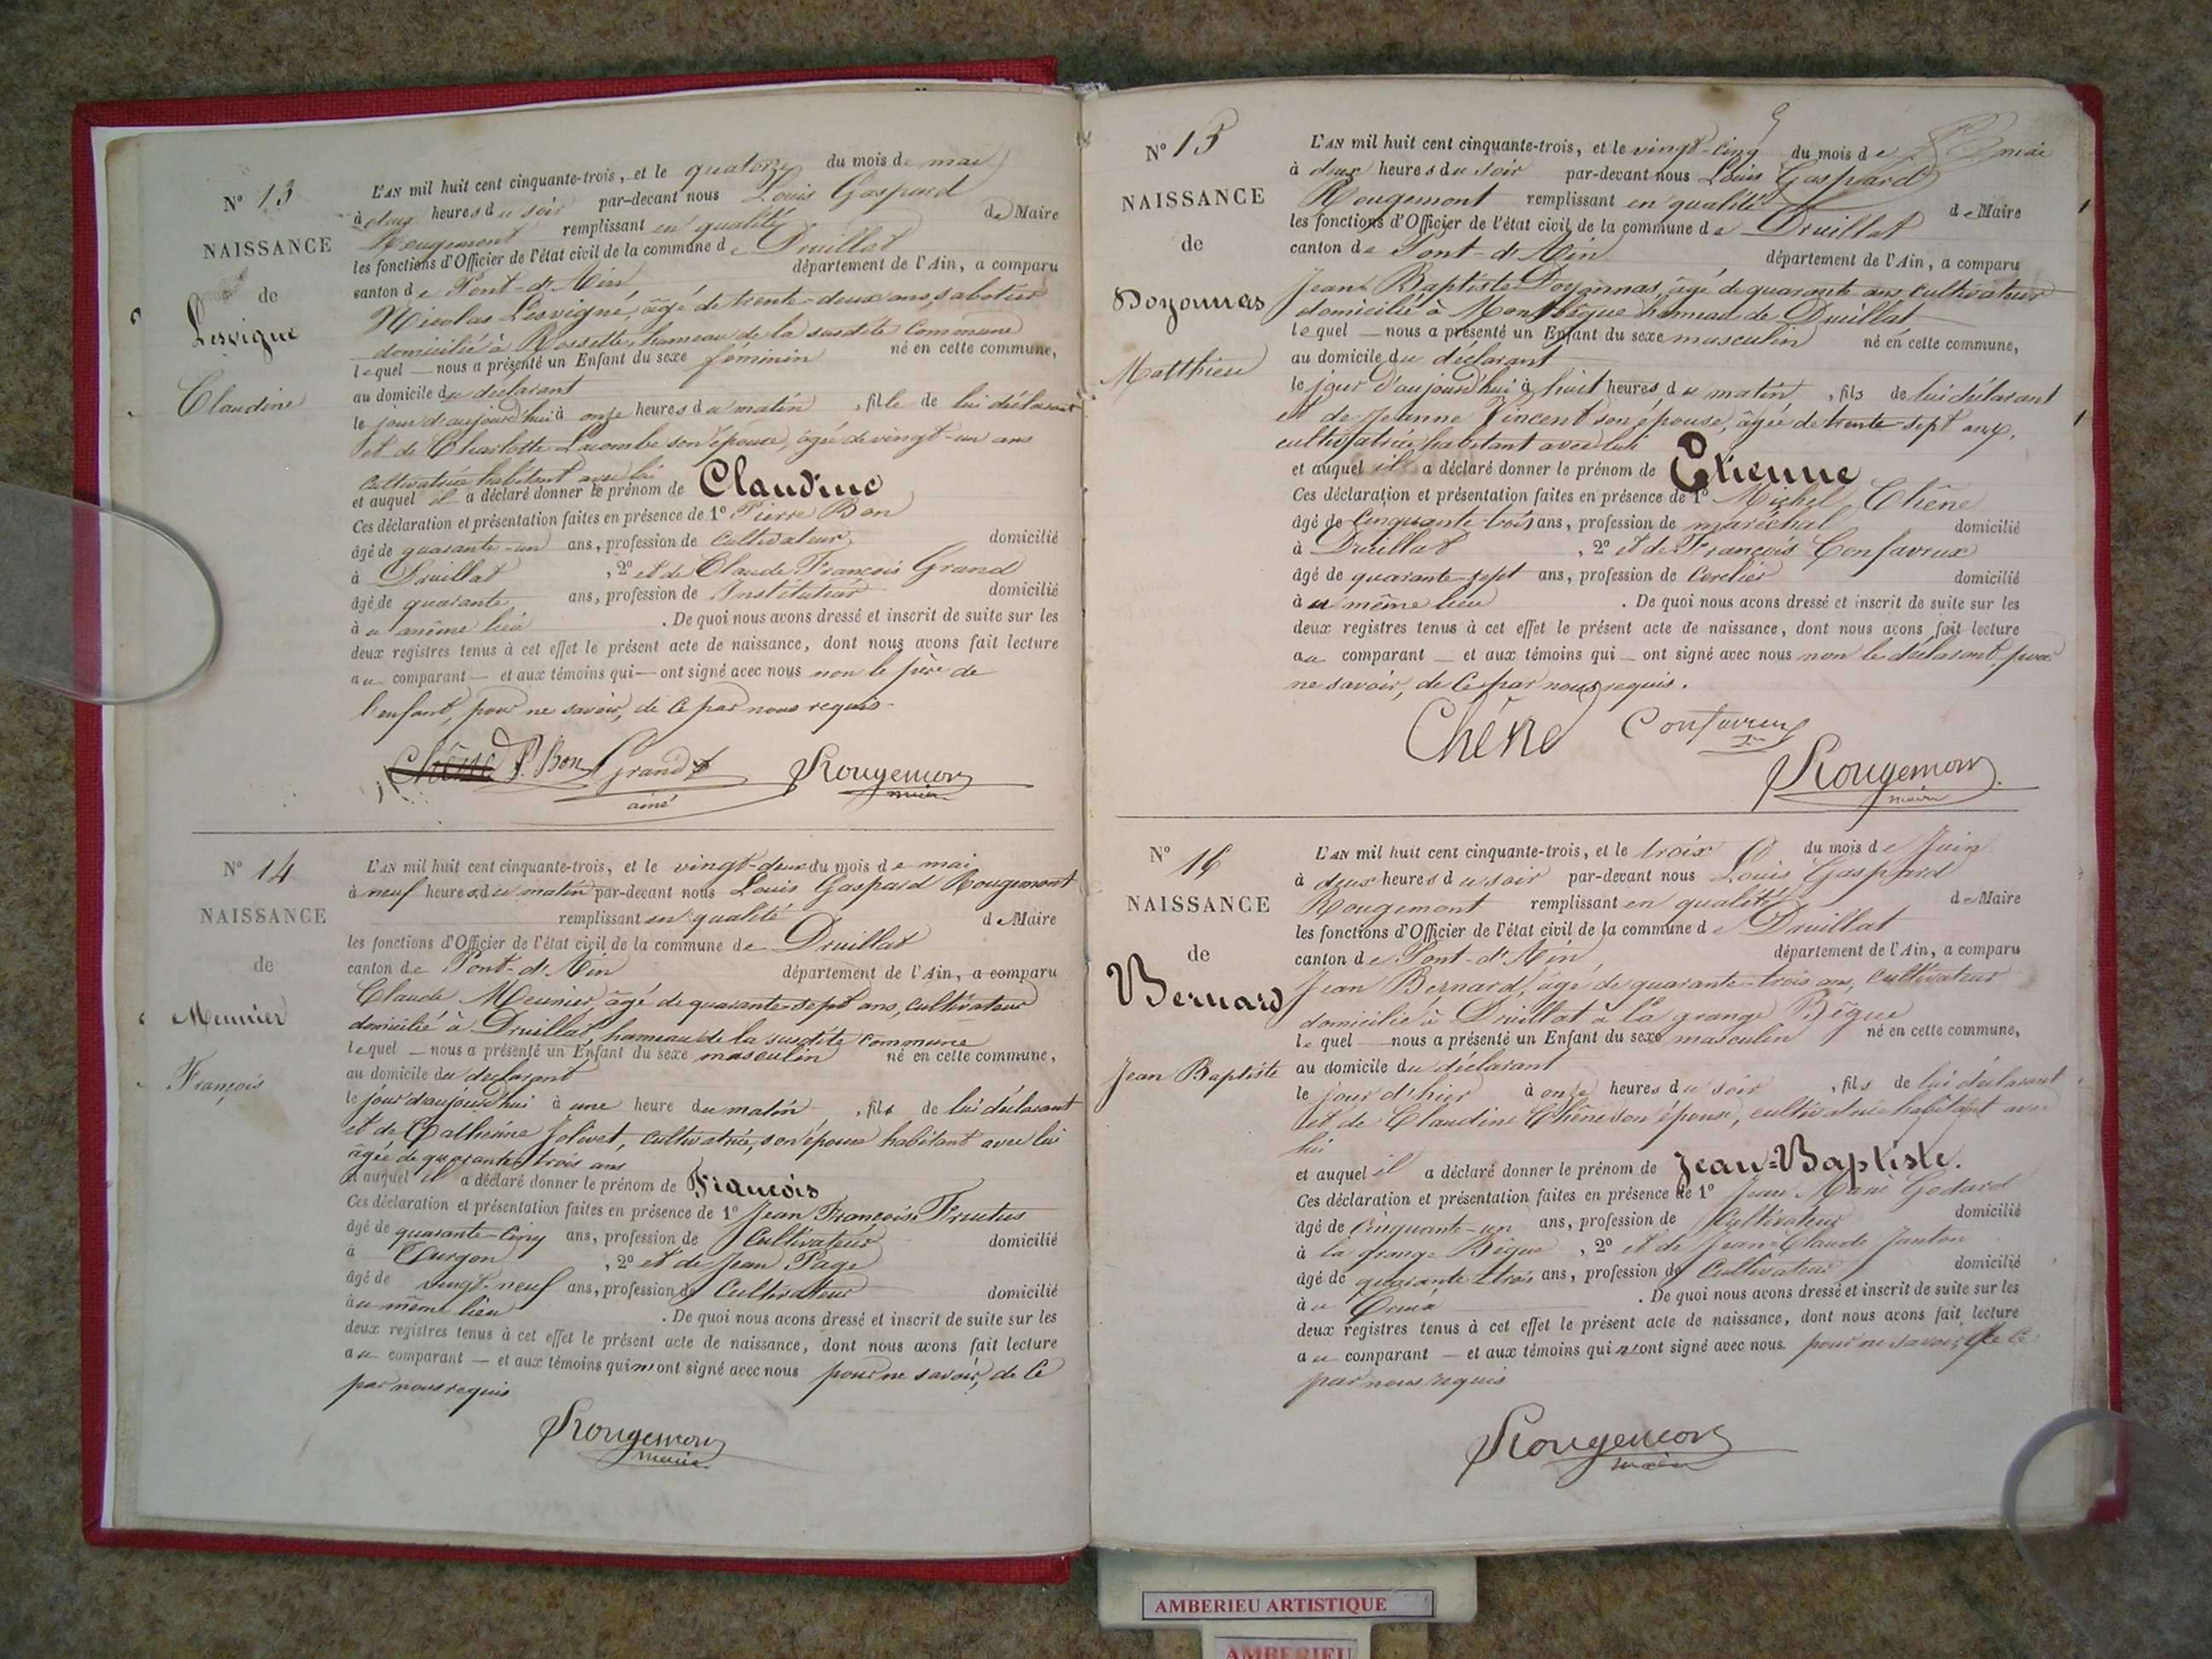 N° 13
NAISSANCE
de
Lesvigne
Claudine
L'AN mil huit cent cinquante-trois, et le quatorze du mois de mai
à deux heures du soir par-devant nous Louis Gaspard
Rougemont remplissant en qualité de Maire
les fonctions d'Officier de l'état civil de la commune de Druillat
canton de Pont-d'Ain département de l'Ain, a comparu
Nicolas Lesvigne, âgé de trente-deux ans, sabotier
domicilié à Rossette, hameau de la susdite commune
lequel — nous a présenté un Enfant du sexe féminin né en cette commune,
au domicile du déclarant
le jour d'aujourd'hui à onze heures du matin, fille de lui déclarant
et de Charlotte Lacombe son épouse, âgée de vingt-un ans
cultivatrice habitant avec lui
et auquel il a déclaré donner le prénom de Claudine
Ces déclaration et présentation faites en présence de 1° Pierre Bon
âgé de quarante-un ans, profession de cultivateur domicilié
à Druillat, 2° et de Claude François Grand
âgé de quarante ans, profession de Instituteur domicilié
à u même lieu. De quoi nous avons dressé et inscrit de suite sur les
deux registres tenus à cet effet le présent acte de naissance, dont nous avons fait lecture
au comparant — et aux témoins qui — ont signé avec nous non le père de
l'enfant, pour ne savoir, de ce par nous requis.
Chêne P. Bon Grand Rougemont
ainé maire
N° 14
NAISSANCE
de
Meunier
François
L'AN mil huit cent cinquante-trois, et le vingt-deux du mois de mai
à neuf heures du matin par-devant nous Louis Gaspard Rougemont
remplissant en qualité de Maire
les fonctions d'Officier de l'état civil de la commune de Druillat
canton de Pont-d'Ain département de l'Ain, a comparu
Claude Meunier, âgé de quarante-sept ans, cultivateur
domicilié à Druillat, hameau de la susdite commune
lequel — nous a présenté un Enfant du sexe masculin né en cette commune,
au domicile du déclarant
le jour d'aujourd'hui à une heure du matin, fils de lui déclarant
et de Catherine Jolivet, cultivatrice, son épouse habitant avec lui
agée de quarante trois ans
et auquel il a déclaré donner le prénom de François
Ces déclaration et présentation faites en présence de 1° Jean François Frutus
âgé de quarante-cinq ans, profession de Cultivateur domicilié
à Turgon, 2° et de Jean Page
âgé de vingt-neuf ans, profession de Cultivateur domicilié
à u même lieu. De quoi nous avons dressé et inscrit de suite sur les
deux registres tenus à cet effet le présent acte de naissance, dont nous avons fait lecture
au comparant — et aux témoins qui n'ont signé avec nous pour ne savoir, de ce
par nous requis
Rougemont
maire
N° 15
NAISSANCE
de
Doyonnas
Matthieu
L'AN mil huit cent cinquante-trois, et le vingt-cinq du mois de mai
à deux heures du soir par-devant nous Louis Gaspard
Rougemont remplissant en qualité de Maire
les fonctions d'Officier de l'état civil de la commune de Druillat
canton de Pont-d'Ain département de l'Ain, a comparu
Jean Baptiste Doyonnas, âgé de quarante ans cultivateur
domicilié à hameau de Druillat
lequel — nous a présenté un Enfant du sexe masculin né en cette commune,
au domicile du déclarant
le jour d'aujourd'hui à huit heures du matin, fils de lui déclarant
et de Jeanne Vincent son épouse, âgée de trente-sept ans,
cultivatrice, habitant avec lui
et auquel il a déclaré donner le prénom de Etienne
Ces déclaration et présentation faites en présence de 1° Michel Chêne
âgé de cinquante-trois ans, profession de maréchal domicilié
à Druillat, 2° et de François Confavreux
âgé de quarante-sept ans, profession de domicilié
à u même lieu. De quoi nous avons dressé et inscrit de suite sur les
deux registres tenus à cet effet le présent acte de naissance, dont nous avons fait lecture
au comparant — et aux témoins qui — ont signé avec nous non le déclarant pour
ne savoir, de ce par nous requis.
Chêne Confavreux
Rougemont
maire
N° 16
NAISSANCE
de
Bernard
Jean Baptiste
L'AN mil huit cent cinquante-trois, et le trois du mois de Juin
à deux heures du soir par-devant nous Louis Gaspard
Rougemont remplissant en qualité de Maire
les fonctions d'Officier de l'état civil de la commune de Druillat
canton de Pont-d'Ain département de l'Ain, a comparu
Jean Bernard, âgé de quarante-trois ans, cultivateur
domicilié à Druillat à la grange Bègue
lequel — nous a présenté un Enfant du sexe masculin né en cette commune,
au domicile du déclarant
le jour d'hier à onze heures du soir, fils de lui déclarant
et de Claudine Chêne son épouse, cultivatrice habitant avec
lui
et auquel il a déclaré donner le prénom de Jean=Baptiste.
Ces déclaration et présentation faites en présence de 1° Jean Marie Godard
âgé de cinquante-un ans, profession de Cultivateur domicilié
à la grange Bègue, 2° et de Jean-Claude Janton
âgé de quarante trois ans, profession de Cultivateur domicilié
à u. De quoi nous avons dressé et inscrit de suite sur les
deux registres tenus à cet effet le présent acte de naissance, dont nous avons fait lecture
au comparant — et aux témoins qui n'ont signé avec nous pour ne savoir, de ce
par nous requis
Rougemont
maire
AMBERIEU ARTISTIQUE
AMBERIEU